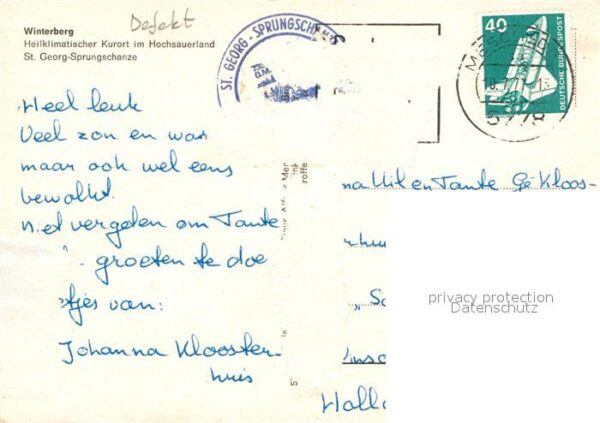 Winterberg
Heilklimatischer Kurort im Hochsauerland
St. Georg-Sprungschanze
Defekt
ST. GEORG-SPRUNGSCHANZE
40
DEUTSCHE BUNDESPOST
5778
Heel leuk
Veel zon en war
maar ook wel eens
bewolkt.
niet vergeten om Tante
"- groeten te doe
etjes van:
Johanna Klooster-
huis
Tante Gé Kloos-
rhui
"Sc
Holla
privacy protection
Datenschutz